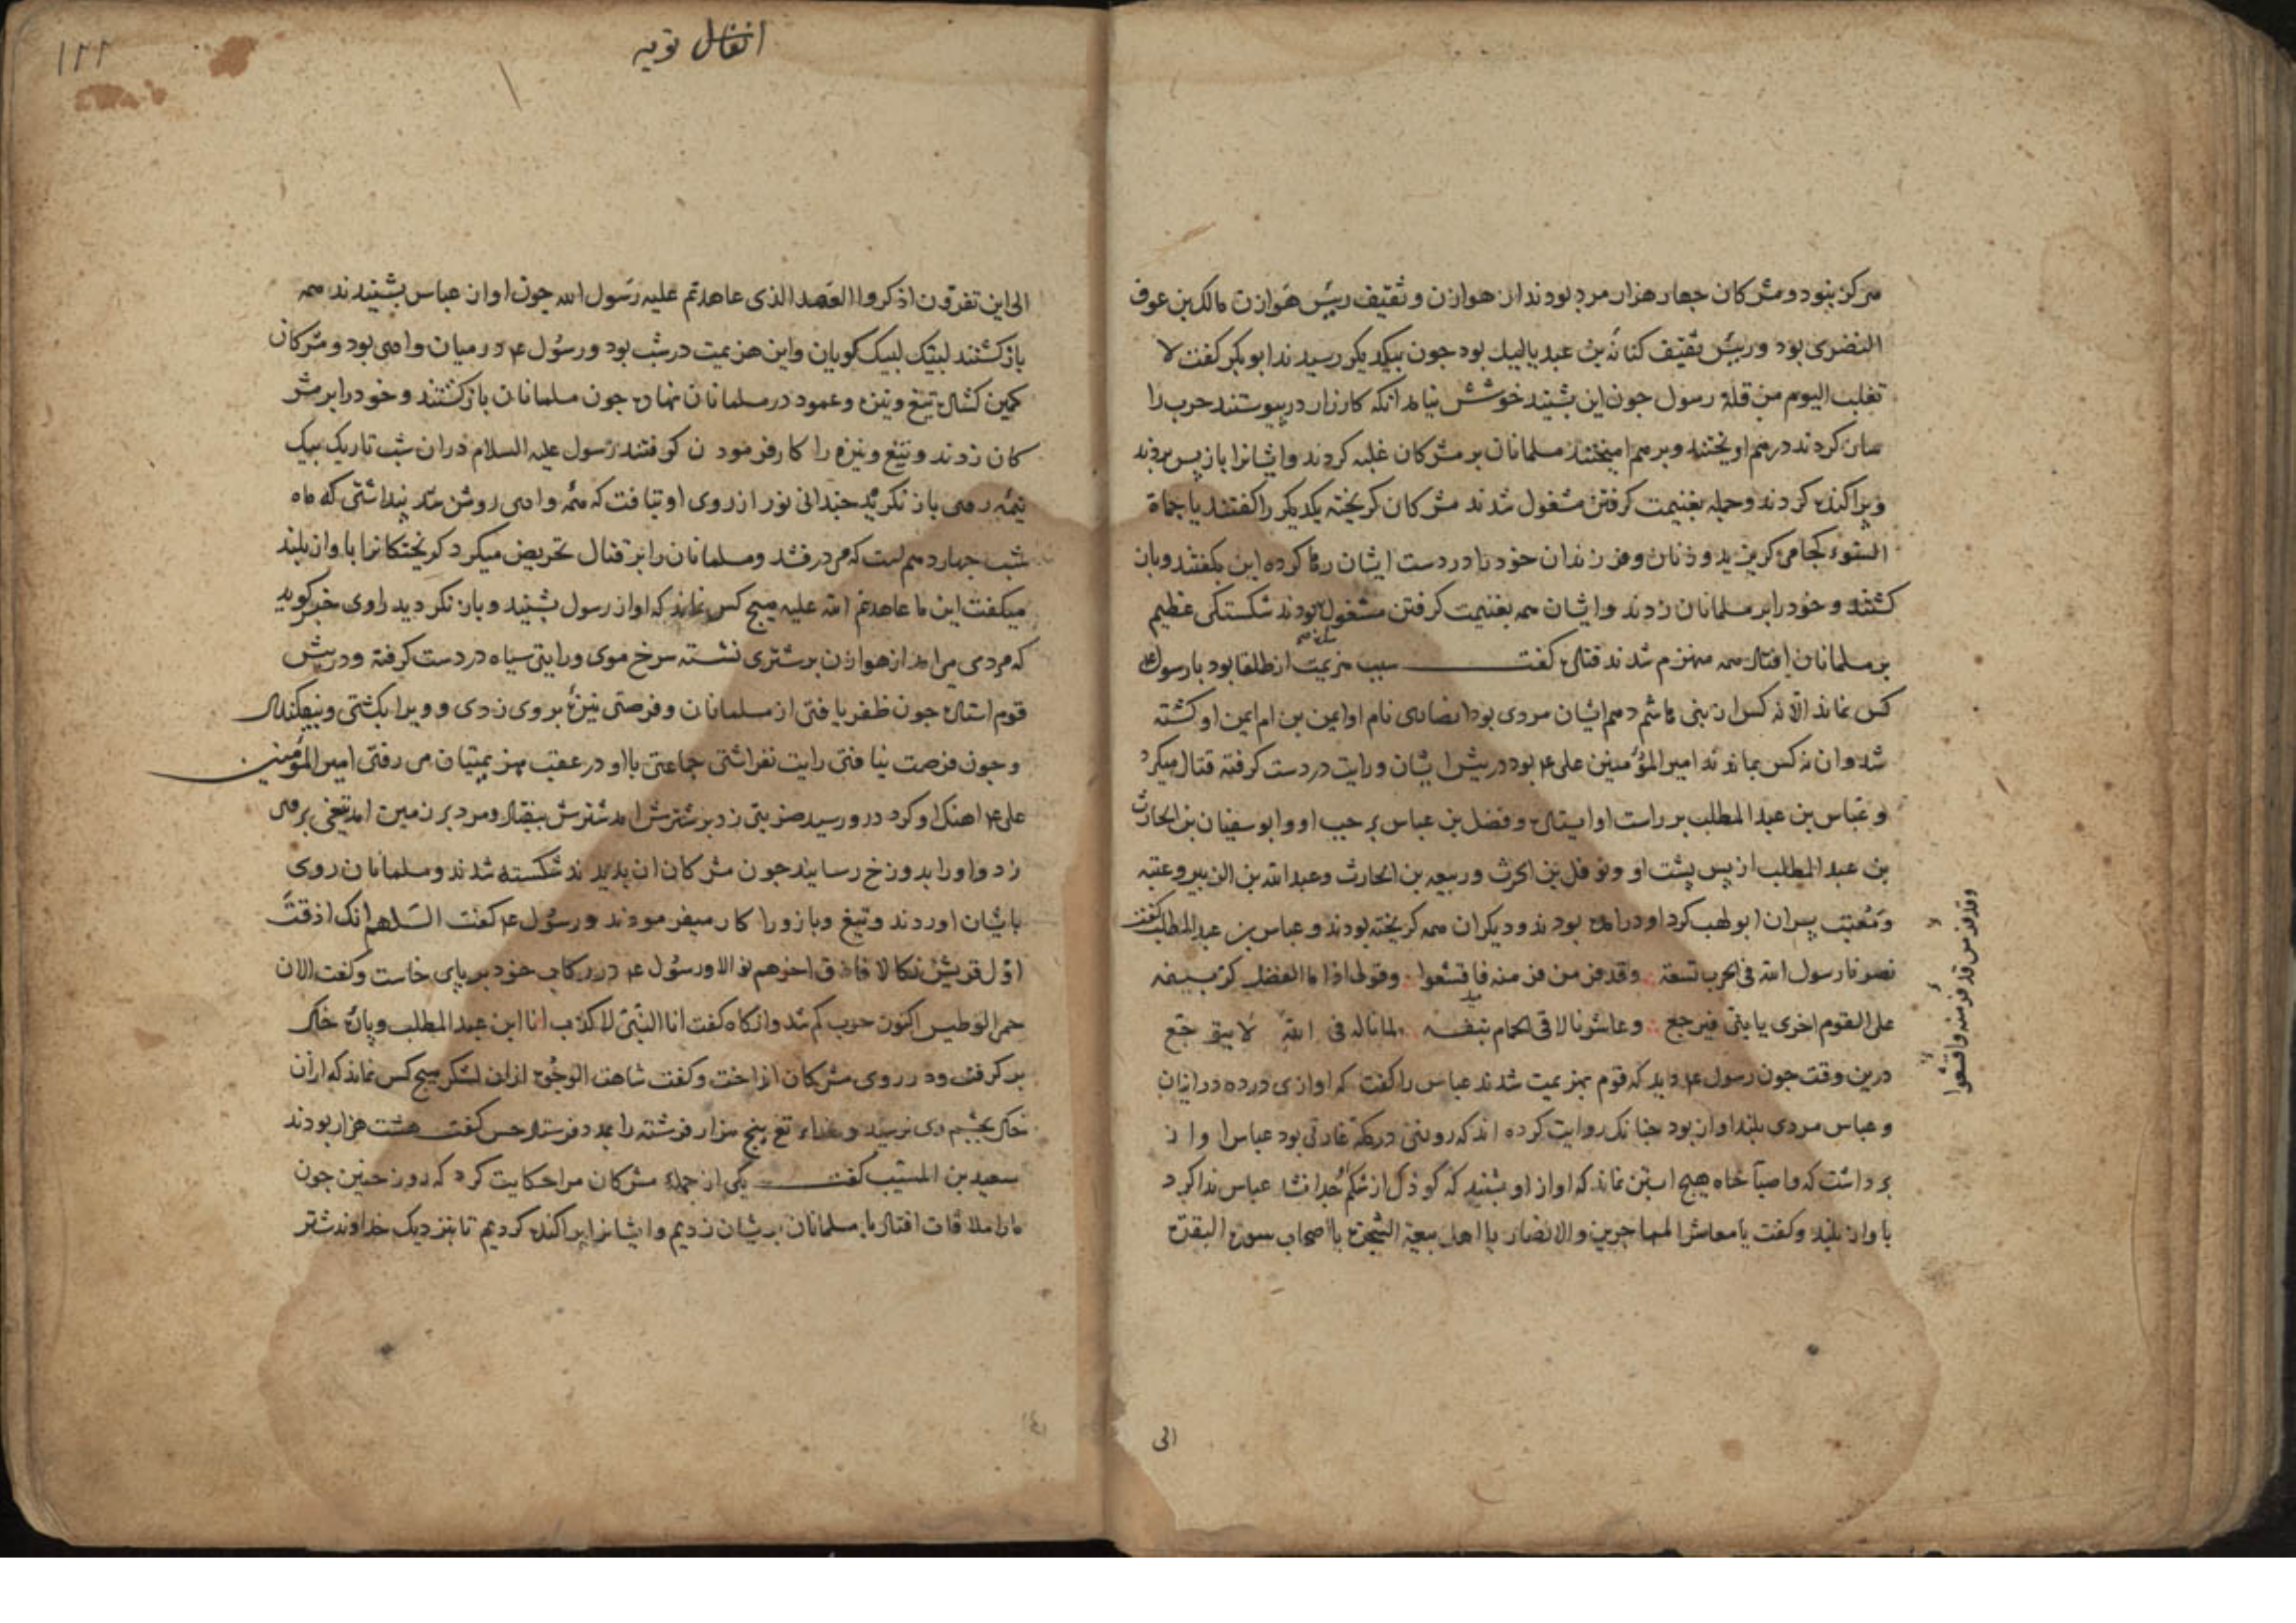 هرکز نبود و مشرکان جهار هزار مرد بودند از هوازن و ثقیف رییس هوازن مالک بن عوف
النضری بود و رییس ثقیف کنانه بن عبد یالیل بود جون بیکدیکر رسیدند ابو بکر کفت لا
تغلب الیوم من قلة رسول جون این بشنید خوشش نیامد انکه کارزار در پیوستند حرب را
ساز کردند درهم اویختند و برهم امیختند مسلمانان بر مشرکان غلبه کردند و ایشانرا باز پس بردند
و پراکنده کردند و جمله بغنیمت کرفتن مشغول شدند مشرکان کریخته یکدیکر را کفتند یا حماة
السوء کجا می کریزید و زنان و فرزندان خود را در دست ایشان رها کرده این بکفتند و باز
کشتند و خود را بر مسلمانان زدند و ایشان همه بغنیمت کرفتن مشغول بودند شکستکی عظیم
بر مسلمانان افتاد همه منهزم شدند قتاده کفت سبب هزیمت از طلقا بود با رسول ع
کس نماند الا نه کس از بنی هاشم دهم ایشان مردی بود انصاری نام او ایمن بن ام ایمن او کشته
شد و ان نه کس بماندند امیر المؤمنین علی ع بود در پیش ایشان و رایت در دست کرفته قتال میکرد
و عباس بن عبد المطلب بر راست او ایستاده و فضل بن عباس بر جب او و ابو سفیان بن الحارث
بن عبد المطلب از پس پشت او و نوفل بن الحرث و ربیعه بن الحارث و عبد الله بن الزبیر و عتبه
و معتب پسران ابو لهب کرد او درامده بودند و دیکران همه کریخته بودند و عباس بن عبد المطلب کفت
نصرنا رسول الله فی الحرب تسعة وقد فر من فر منه فاقشعوا وقولی اذا ما الفضل کر بسیفه
علی القوم اخری یا بنی فیرجع وعاشرنا لاقی الحمام بنفسه لما ناله فی الله لا یتوجع
وقد فر من قد فر منه واقشعوا
درین وقت جون رسول ع دید که قوم بهزیمت شدند عباس را کفت که اوازی درده در ایشان
و عباس مردی بلند اواز بود جنانک روایت کرده اند که روزی در مکه غارتی بود عباس اواز
برداشت که وا صباحاه هیج ابستن نماند که اواز او بشنید که کودک از شکم جدا نشد عباس ندا کرد
باواز بلند و کفت یا معاشر المهاجرین والانصار یا اهل بیعة الشجرة یا اصحاب سورة البقرة
الی
انفال توبه
۱۲۲
الی این تفرون اذکروا العهد الذی عاهدتم علیه رسول الله جون اواز عباس بشنیدند همه
باز کشتند لبیک لبیک کویان و این هزیمت در شب بود و رسول ع در میان وادی بود و مشرکان
کمین کشاده تیغ و نیزه و عمود در مسلمانان نهاده جون مسلمانان باز کشتند و خود را بر مشر
کان زدند و تیغ و نیزه را کار فرمودن کرفتند رسول علیه السلام دران شب تاریک بیک
نیمه روی باز نکرید جندانی نور از روی او بتافت که همه وادی روشن شد پنداشتی که ماه
شب جهاردهم است که می درفشد و مسلمانان را بر قتال تحریض میکرد کریختکانرا باواز بلند
میکفت این ما عاهدتم الله علیه هیج کس نماند که اواز رسول بشنید و باز نکردید راوی خبر کوید
که مردی می امد از هوازن بر شتری نشسته سرخ موی و رایتی سیاه در دست کرفته و در پیش
قوم استاده جون ظفر یافتی از مسلمانان و فرصتی نیزه بر وی زدی و ویرا بکشتی و بیفکندی
و جون فرصت نیافتی رایت بفراشتی جماعتی با او در عقب هزیمتیان می رفتی امیر المؤمنین
علی ع اهنک او کرد در و رسید ضربتی زد بر شترش امد شترش بیفتاد و مرد بر زمین امد تیغی بر وی
زد و او را بدوزخ رسانید جون مشرکان ان بدیدند شکسته شدند و مسلمانان روی
بایشان اوردند و تیغ و بازو را کار میفرمودند و رسول ع کفت اللهم انک اذقت
اول قریش نکالا فاذق اخرهم نوالا و رسول ع در رکاب خود بر پای خاست و کفت الان
حمی الوطیس اکنون حرب کرم شد وانکاه کفت انا النبی لا کذب انا ابن عبد المطلب و پاره خاک
بر کرفت و در روی مشرکان انداخت و کفت شاهت الوجوه ازان لشکر هیج کس نماند که ازان
خاک بجشم وی نرسید و خدای تع پنج هزار فرشته را بمدد فرستاد حسن کفت هشت هزار بودند
سعید بن المسیب کفت یکی از جمله مشرکان مرا حکایت کرد که روز حنین جون
ما را ملاقات افتاد با مسلمانان بر ایشان زدیم و ایشانرا پراکنده کردیم تا بنزدیک خداوند شتر